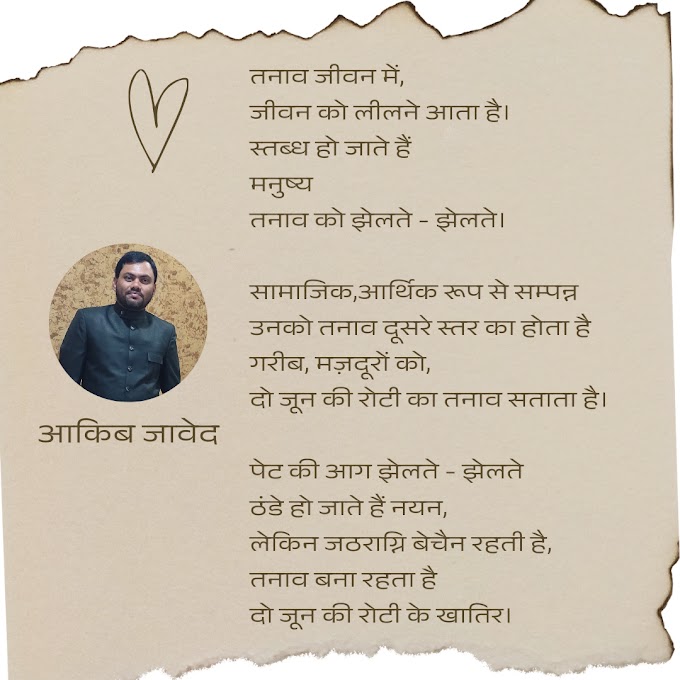 तनाव जीवन में,
जीवन को लीलने आता है।
स्तब्ध हो जाते हैं
मनुष्य
तनाव को झेलते - झेलते।
सामाजिक,आर्थिक रूप से सम्पन्न
उनको तनाव दूसरे स्तर का होता है
गरीब, मज़दूरों को,
दो जून की रोटी का तनाव सताता है।
आकिब जावेद
पेट की आग झेलते - झेलते
ठंडे हो जाते हैं नयन,
लेकिन जठराग्नि बेचैन रहती है,
तनाव बना रहता है
दो जून की रोटी के खातिर।